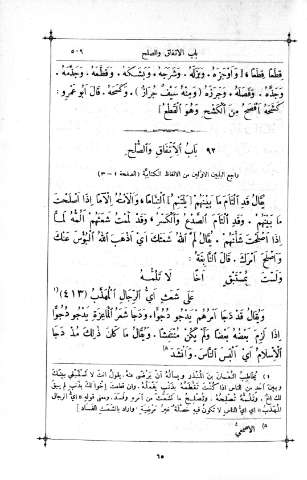 باب الاتفاق والصلح ٥٠٩
قِطَعًا قِطَعًا [وَأَوْجَزَهُ. وَبَزَلَهُ. وَشَرَجَهُ. وَبَشَكَهُ. وَقَطَّمَهُ. وَجَذَمَهُ.
وَجَذَّهُ. وَقَصَلَهُ. وَجَرَزَهُ (وَمِنْهُ سَيْفٌ جُرَازٌ). وَكَسَحَهُ. قَالَ أَبُو عَمْرٍو:
كَشَحَهُ أَفْصَحُ مِنَ الْكَشْحِ وَهُوَ الْقَطْعُ]
٩٢ بَابُ الْاِتِّفَاقِ وَالصُّلْحِ
راجع البابين الاولين من الالفاظ الكتابيّة (الصفحة ١ – ٣)
يُقَالُ قَدِ الْتَأَمَ مَا بَيْنَهُمْ [يَلْتَئِمُ] الْتِئَامًا. وَلَاءَمْتُهُ إِلْآمًا إِذَا أَصْلَحْتَ
مَا بَيْنَهُمْ. وَقَدِ الْتَأَمَ الصَّدْعُ وَالْكَسْرُ. وَقَدْ لَمَمْتُ شَعَثَهُمْ أَلُمُّهُ لَمًّا
إِذَا أَصْلَحْتَ شَأْنَهُمْ. يُقَالُ لَمَّ اللهُ شَعَثَكَ أَيْ أَذْهَبَ اللهُ الْبُؤْسَ عَنْكَ
وَأَصْلَحَ أَمْرَكَ. قَالَ النَّابِغَةُ:
وَلَسْتَ بِمُسْتَبْقٍ أَخًا لَا تَلُمُّهُ
عَلَى شَعَثٍ أَيُّ الرِّجَالِ الْمُهَذَّبُ (٤١٣)
وَيُقَالُ قَدْ دَجَا أَمْرُهُمْ يَدْجُو دُجُوًّا. وَدَجَا شَعَرُ الْمَاعِزَةِ يَدْجُو دُجُوًّا
إِذَا لَزِمَ بَعْضُهُ بَعْضًا وَلَمْ يَكُنْ مُنْتَفِشًا. وَيُقَالُ مَا كَانَ ذٰلِكَ مُذْ دَجَا
الْإِسْلَامُ أَيْ أَلْبَسَ النَّاسَ. وَأَنْشَدَ
١) يخاطب النعمان بن المنذر ويسألهُ أن يرضى عنهُ. يقول انت لا تستبقي بينك
وبين أحد من الناس
المهذّب
الاصمعيّ
٦٥